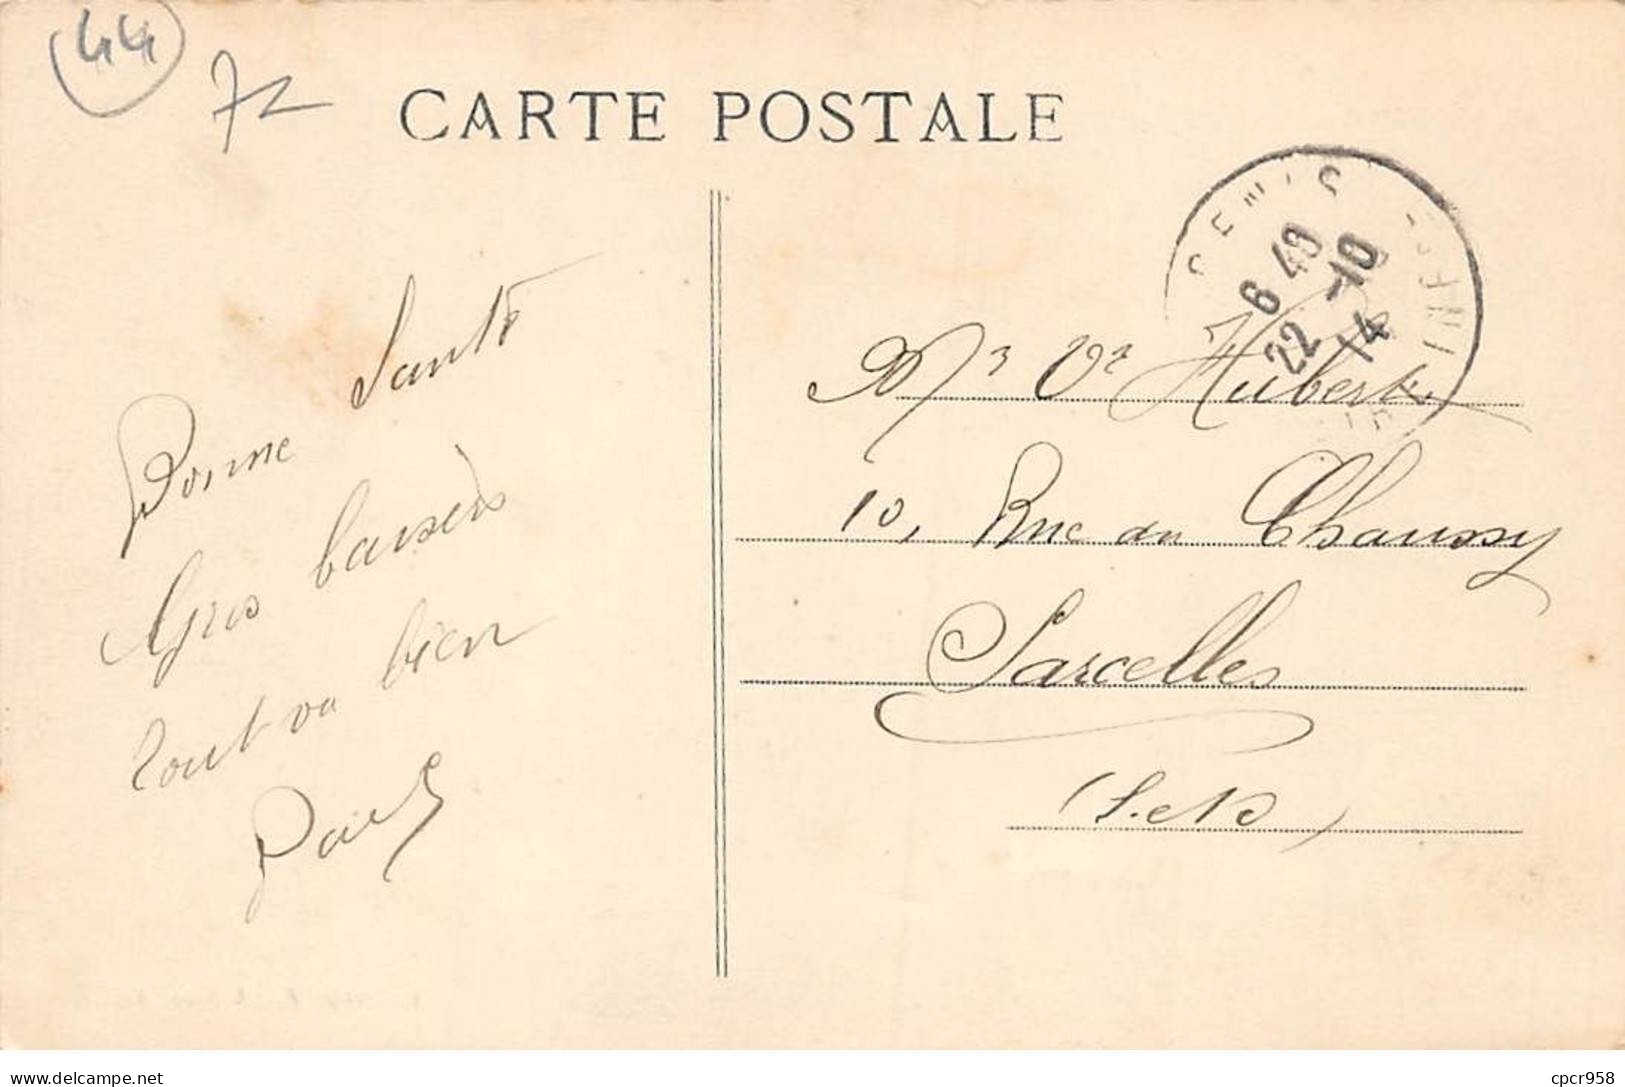 44
72
CARTE POSTALE
6 40
22 -10
14
Bonne Santé
Gros baisers
Tout va bien
Paul
Me Vve Hubert
10, Rue du Chaussy
Sarcelles
(S. et O)
delcampe.net
cpcr958